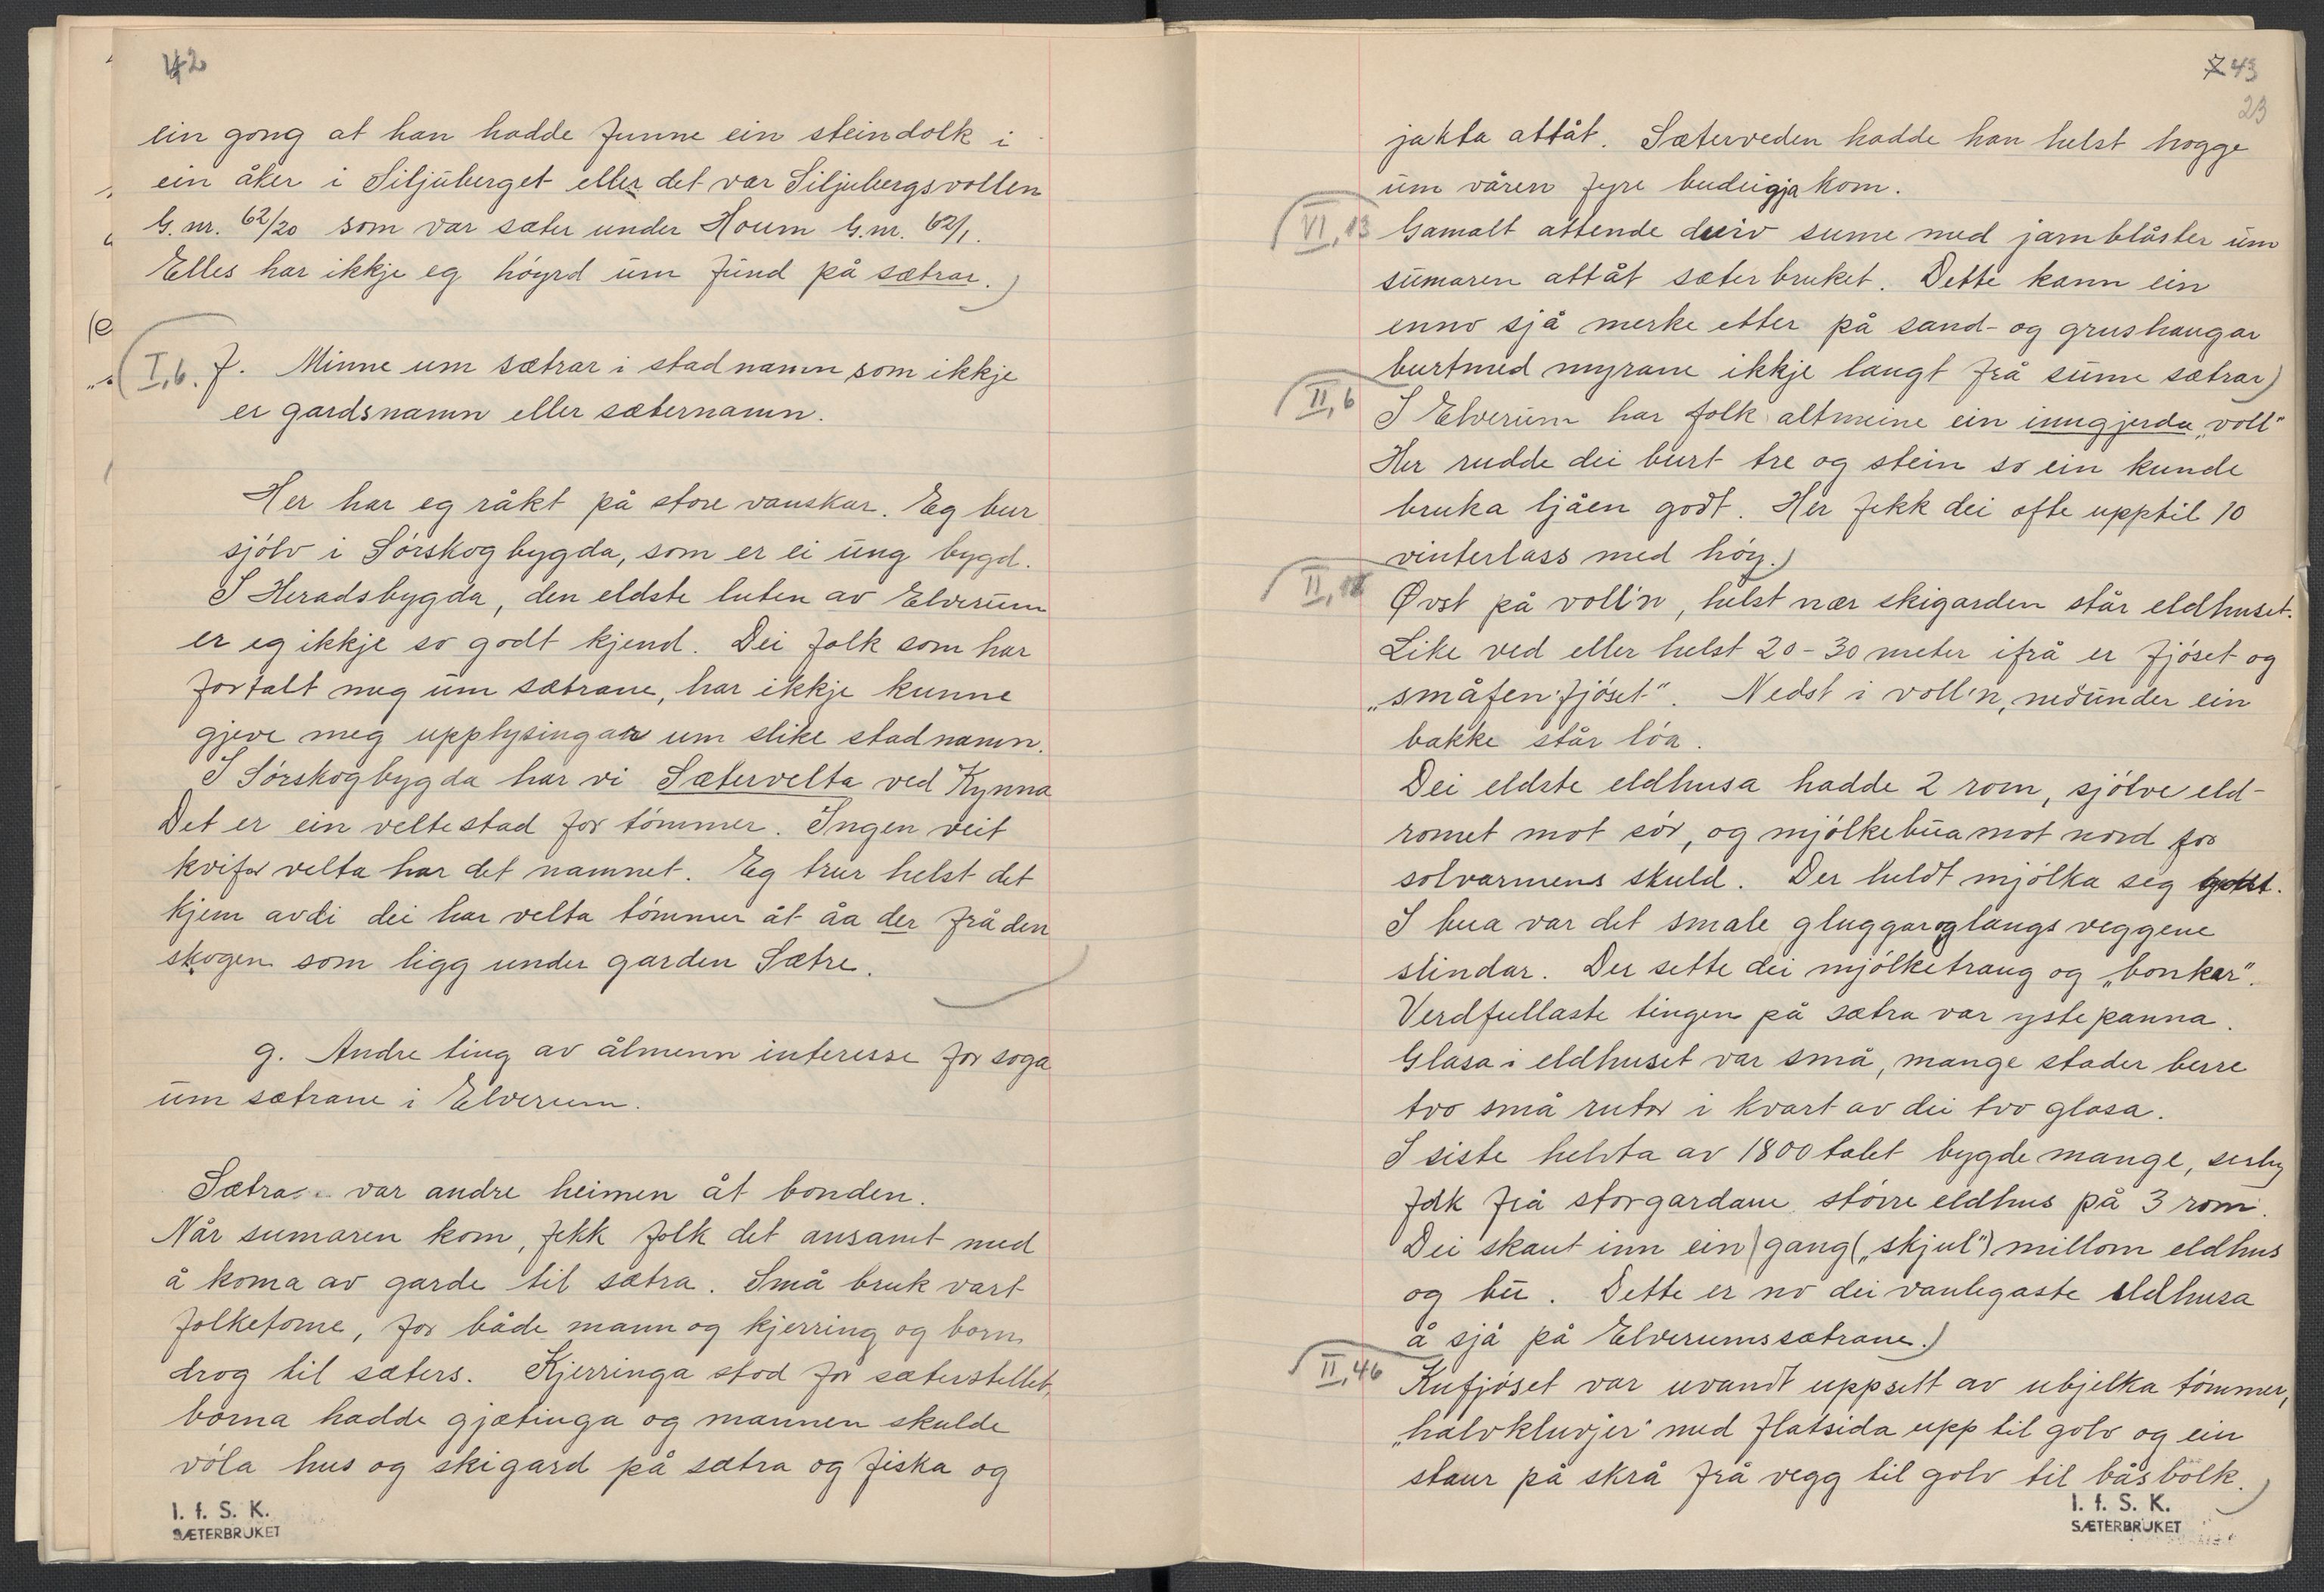 42
ein gong at han hadde funne ein steindolk i
ein åker i Siljuberget eller det var Siljubergsvollen
G. nr. 62/20 som var sæter under Houm G. nr. 62/1.
Elles har ikkje eg höyrd um fund på sætrar.)
I,6. f. Minne um sætrar i stadnamn som ikkje
er gardsnamn eller sæternamn.
Her har eg råkt på store vanskar. Eg bur
sjölv i Sörskogbygda, som er ei ung bygd.
I Heradsbygda, den eldste luten av Elverum
er eg ikkje so godt kjend. Dei folk som har
fortalt meg um sætrane, har ikkje kunne
gjeve meg upplysingar um slike stadnamn.
I Sörskogbygda har vi Sætervelta ved Kynna
Det er ein veltestad for tömmer. Ingen veit
kvifor velta har det namnet. Eg trur helst det
kjem avdi dei har velta tömmer åt åa der frå den
skogen som ligg under garden Sætre.
g. Andre ting av ålmenn interesse for soga
um sætrane i Elverum.
Sætra var andre heimen åt bonden.
Når sumaren kom, fekk folk det ansamt med
å koma av garde til sætra. Små bruk vart
folketome, for både mann og kjerring og born
drog til sæters. Kjerringa stod for sæterstellet,
borna hadde gjætinga og mannen skulde
völa hus og skigard på sætra og fiska og
I. f. S. K.
SÆTERBRUKET
7 43
23
jakta attåt. Sæterveden hadde han helst hogge
um våren fyre budeigja kom.
VI, 13 Gamalt attende dreiv sume med jarnblåster um
sumaren attåt sæterbruket. Dette kann ein
enno sjå merke etter på sand- og grushaugar
burtmed myrane ikkje langt frå sume sætrar)
II, 6 I Elverum har folk altmeine ein inngjerda „voll"
Her rudde dei burt tre og stein so ein kunde
bruka ljåen godt. Her fekk dei ofte upptil 10
vinterlass med höy.)
II, Øvst på voll'n, helst nær skigarden står eldhuset.
Like ved eller helst 20-30 meter ifrå er fjöset og
„småfen-fjöset". Nedst i voll'n, nedunder ein
bakke står löa.
Dei eldste eldhusa hadde 2 rom, sjölve eld-
romet mot sör, og mjölkebua mot nord for
solvarmens skuld. Der heldt mjölka seg godt.
I bua var det smale gluggar og langs veggene
slindar. Der sette dei mjölketraug og „bonkar".
Verdfullaste tingen på sætra var ystepanna.
Glasa i eldhuset var små, mange stader berre
tvo små rutor i kvart av dei tvo glasa.
I siste helvta av 1800 talet bygde mange, serleg
folk frå storgardane större eldhus på 3 rom.
Dei skaut inn ein gang („skjul") millom eldhus
og bu. Dette er no dei vanlegaste eldhusa
å sjå på Elverumssætrane.)
II, 46 Kufjöset var uvandt uppsett av ubjelka tömmer,
„halvkluvjer" med flatsida upp til golv og ein
staur på skrå frå vegg til golv til båsbolk.)
I. f. S. K.
SÆTERBRUKET